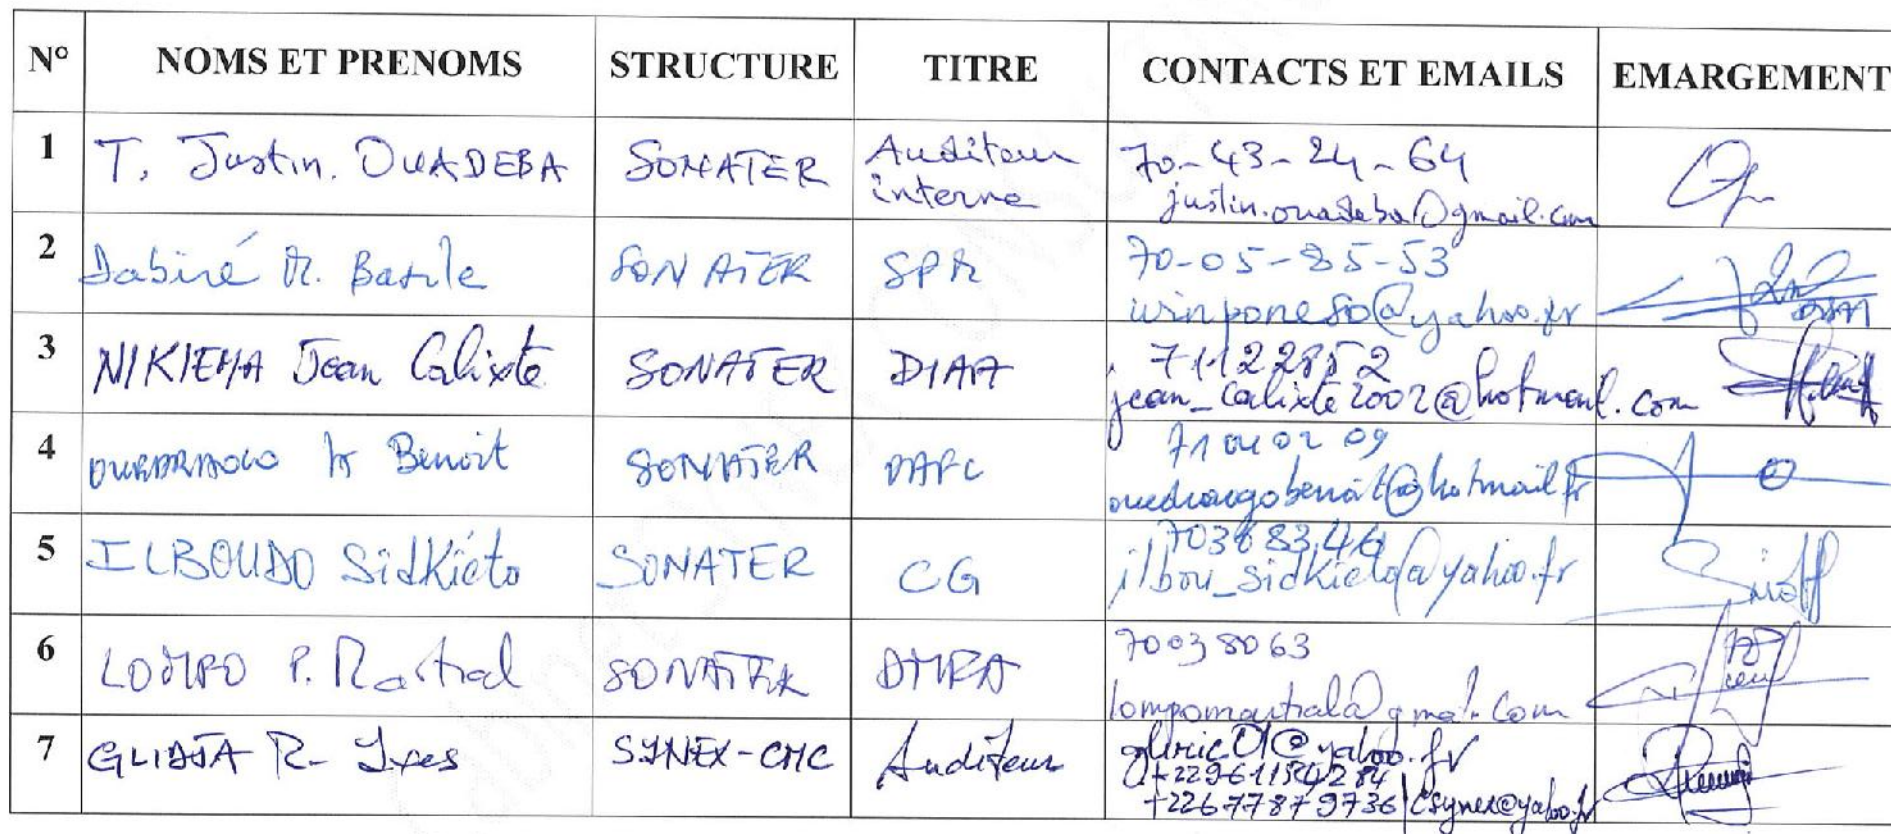 N° NOMS ET PRENOMS STRUCTURE TITRE CONTACTS ET EMAILS EMARGEMENT
1 T. Justin. OUADEBA SONATER Auditeur interne 70-43-24-64
justin.ouadeba@gmail.com
2 Dabiré M. Basile SONATER SPM 70-05-85-53
winpone80@yahoo.fr
3 NIKIEMA Jean Calixte SONATER DIAA 71122852
jean_calixte2002@hotmail.com
4 OUEDRAOGO Benoit SONATER DAFC 71 04 02 09
ouedraogobenoit@hotmail.fr
5 ILBOUDO Sidkiéta SONATER CG
ilbou_sidkieta@yahoo.fr
6 LOMPO P. Martial SONATER DMRA 70038063
lompomartial@gmail.com
7 R. Yves SYNEX-CMC Auditeur
+22961154284
+22677879736 / csynex@yahoo.fr